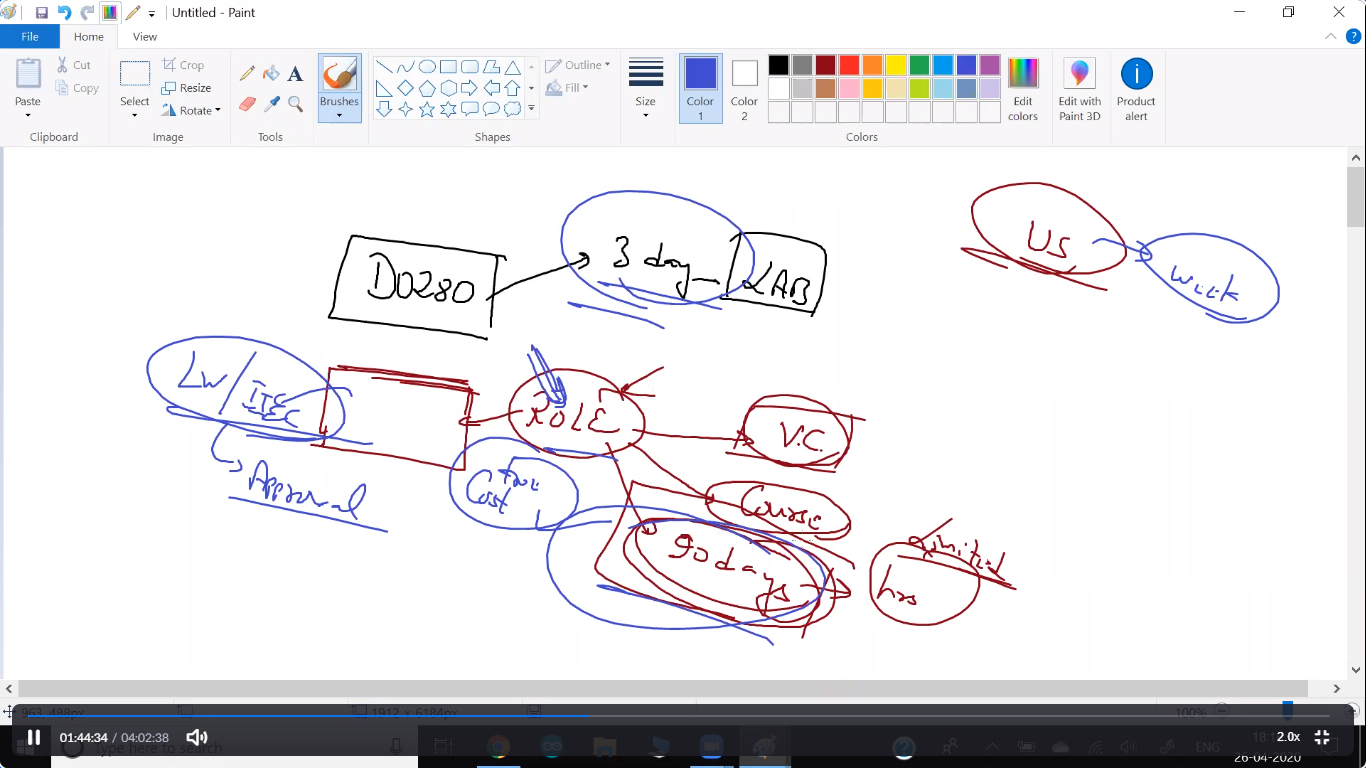 Untitled - Paint
File Home View
Paste
Cut
Copy
Clipboard
Select
Crop
Resize
Rotate
Image
Tools
Brushes
Shapes
Outline
Fill
Size
Color 1
Color 2
Colors
Edit colors
Edit with Paint 3D
Product alert
DO280
3 day
LAB
US
week
LW/
Approval
ROLE
V.C.
Cost
Course
90 days
Limited
hrs
963, 488px
1912 × 6184px
100%
01:44:34 / 04:02:38
2.0x
Type here to search
ENG
26-04-2020